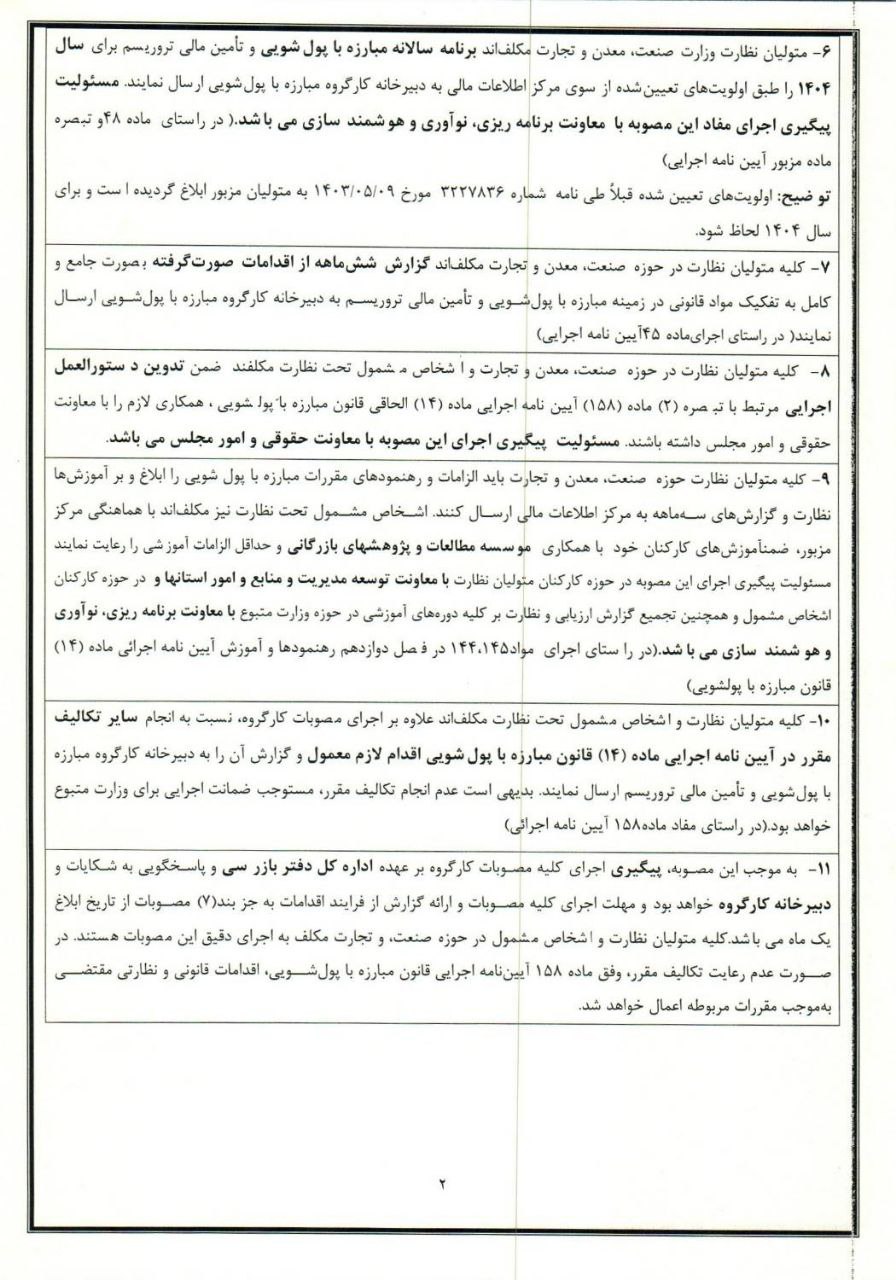 ۶- متولیان نظارت وزارت صنعت، معدن و تجارت مکلف‌اند برنامه سالانه مبارزه با پول‌شویی و تأمین مالی تروریسم برای سال
۱۴۰۴ را طبق اولویت‌های تعیین‌شده از سوی مرکز اطلاعات مالی به دبیرخانه کارگروه مبارزه با پول‌شویی ارسال نمایند. مسئولیت
پیگیری اجرای مفاد این مصوبه با معاونت برنامه ریزی، نوآوری و هوشمند سازی می باشد.( در راستای ماده ۴۸و تبصره
ماده مزبور آیین نامه اجرایی)
توضیح: اولویت‌های تعیین شده قبلاً طی نامه شماره ۳۲۲۷۸۳۶ مورخ ۱۴۰۳/۰۵/۰۹ به متولیان مزبور ابلاغ گردیده است و برای
سال ۱۴۰۴ لحاظ شود.
۷- کلیه متولیان نظارت در حوزه صنعت، معدن و تجارت مکلف‌اند گزارش شش‌ماهه از اقدامات صورت‌گرفته بصورت جامع و
کامل به تفکیک مواد قانونی در زمینه مبارزه با پول‌شویی و تأمین مالی تروریسم به دبیرخانه کارگروه مبارزه با پول‌شویی ارسال
نمایند( در راستای اجرای‌ماده ۴۵آیین نامه اجرایی)
۸- کلیه متولیان نظارت در حوزه صنعت، معدن و تجارت و اشخاص مشمول تحت نظارت مکلفند ضمن تدوین دستورالعمل
اجرایی مرتبط با تبصره (۲) ماده (۱۵۸) آیین نامه اجرایی ماده (۱۴) الحاقی قانون مبارزه با پولشویی ، همکاری لازم را با معاونت
حقوقی و امور مجلس داشته باشند. مسئولیت پیگیری اجرای این مصوبه با معاونت حقوقی و امور مجلس می باشد.
۹- کلیه متولیان نظارت حوزه صنعت، معدن و تجارت باید الزامات و رهنمودهای مقررات مبارزه با پول شویی را ابلاغ و بر آموزش‌ها
نظارت و گزارش‌های سه‌ماهه به مرکز اطلاعات مالی ارسال کنند. اشخاص مشمول تحت نظارت نیز مکلف‌اند با هماهنگی مرکز
مزبور، ضمنآموزش‌های کارکنان خود با همکاری موسسه مطالعات و پژوهشهای بازرگانی و حداقل الزامات آموزشی را رعایت نمایند
مسئولیت پیگیری اجرای این مصوبه در حوزه کارکنان متولیان نظارت با معاونت توسعه مدیریت و منابع و امور استانها و در حوزه کارکنان
اشخاص مشمول و همچنین تجمیع گزارش ارزیابی و نظارت بر کلیه دوره‌های آموزشی در حوزه وزارت متبوع با معاونت برنامه ریزی، نوآوری
و هوشمند سازی می باشد.(در راستای اجرای مواد۱۴۴،۱۴۵ در فصل دوازدهم رهنمودها و آموزش آیین نامه اجرائی ماده (۱۴)
قانون مبارزه با پولشویی)
۱۰- کلیه متولیان نظارت و اشخاص مشمول تحت نظارت مکلف‌اند علاوه بر اجرای مصوبات کارگروه، نسبت به انجام سایر تکالیف
مقرر در آیین نامه اجرایی ماده (۱۴) قانون مبارزه با پول‌شویی اقدام لازم معمول و گزارش آن را به دبیرخانه کارگروه مبارزه
با پول‌شویی و تأمین مالی تروریسم ارسال نمایند. بدیهی است عدم انجام تکالیف مقرر، مستوجب ضمانت اجرایی برای وزارت متبوع
خواهد بود.(در راستای مفاد ماده۱۵۸ آیین نامه اجرائی)
۱۱- به موجب این مصوبه، پیگیری اجرای کلیه مصوبات کارگروه بر عهده اداره کل دفتر بازرسی و پاسخگویی به شکایات و
دبیرخانه کارگروه خواهد بود و مهلت اجرای کلیه مصوبات و ارائه گزارش از فرایند اقدامات به جز بند(۷) مصوبات از تاریخ ابلاغ
یک ماه می باشد.کلیه متولیان نظارت و اشخاص مشمول در حوزه صنعت، و تجارت مکلف به اجرای دقیق این مصوبات هستند. در
صورت عدم رعایت تکالیف مقرر، وفق ماده ۱۵۸ آیین‌نامه اجرایی قانون مبارزه با پول‌شویی، اقدامات قانونی و نظارتی مقتضی
به‌موجب مقررات مربوطه اعمال خواهد شد.
۲